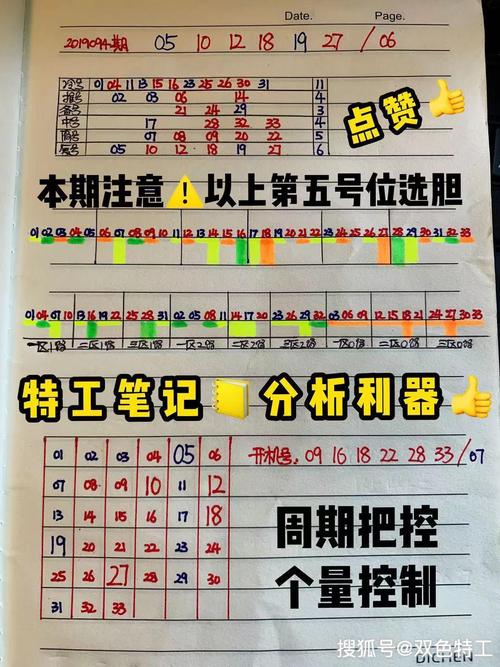 Date. Page.
2019094期 05 10 12 18 19 27 / 06
冷号 01 04 11 13 15 16 23 25 26 30 31 11
02 03 06 14 4
21 24 29 3
中号 17 28 32 33 4
07 08 09 20 22 5
05 10 12 18 19 27 6
点赞👍
本期注意⚠️以上第五号位选胆
01 02 03 04 05 06 07 08 09 10 11 12 13 14 15 16 17 18 19 20 21 22 23 24 25 26 27 28 29 30 31 32 33
01 04 07 10 13 16 19 22 25 28 31 02 05 08 11 14 17 20 23 26 29 32 03 06 09 12 15 18 21 24 27 30 33
一区1路 二区1路 三区1路 一区2路 二区2路 三区2路 一区0路 二区0路 三区0路
特工笔记📒分析利器👍
01 02 03 04 05 06 开机号: 09 16 18 22 28 33 / 07
07 08 09 10 11 12
13 14 15 16 17 18
周期把控
19 20 21 22 23 24
25 26 27 28 29 30
个量控制
31 32 33
搜狐号@双色特工
DICHEN